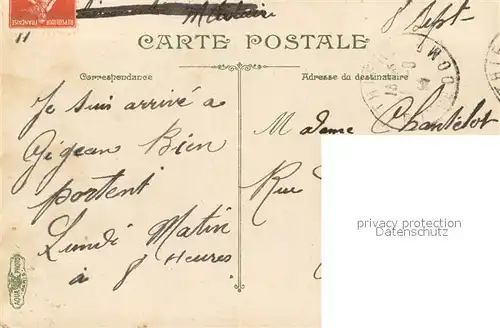 Militaire
8 Sept
11
CARTE POSTALE
Correspondance
Adresse du destinataire
Je suis arrivé a
Gigean Bien
portent
Lundi Matin
à 8 Heures
Madame Chantelot
Rue
privacy protection
Datenschutz